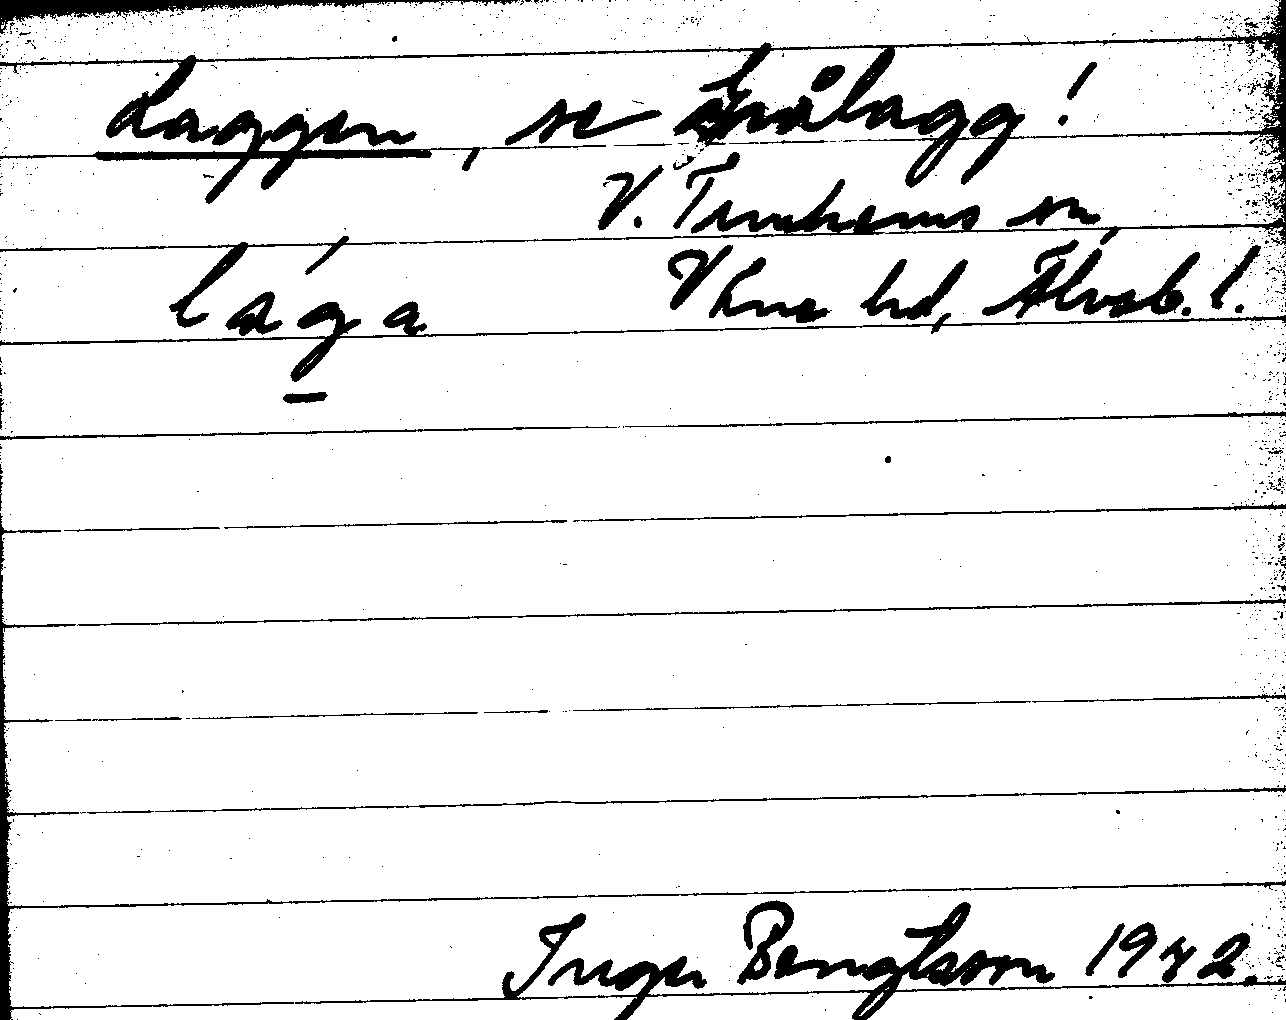 Laggen, se Smålagg!
V. Tunhems sn,
lága Väne hd, Älvsb. l.
Inger Bengtsson 1942.